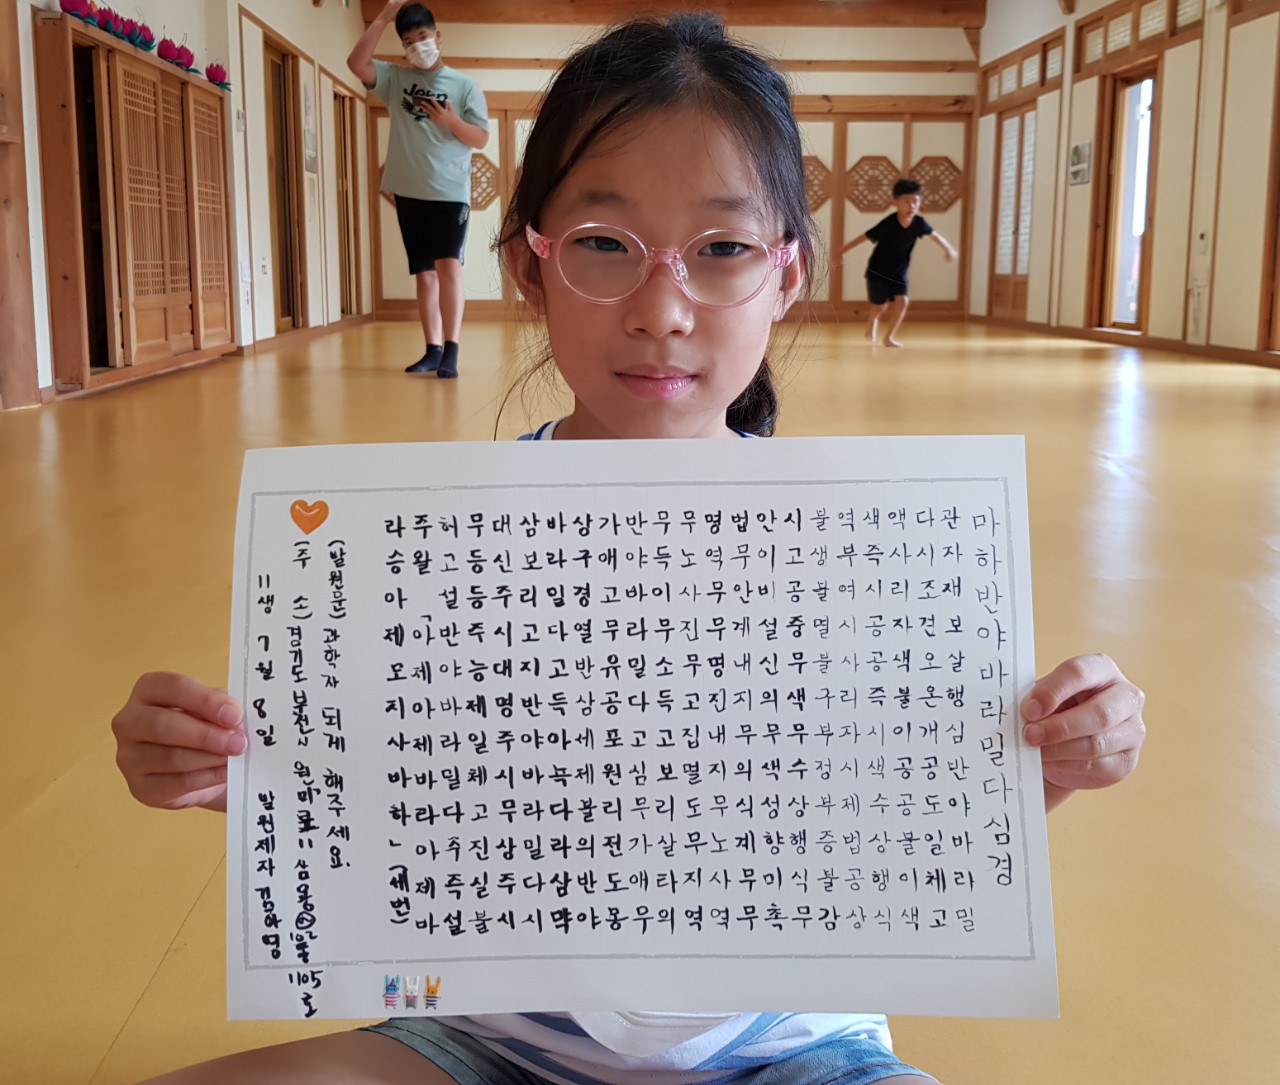 마하반야바라밀다심경
관자재보살행심반야바라밀
다시조견오온개공도일체고
액사리자색불이공공불이색
색즉시공공즉시색수상행식
역부여시사리자시제법공상
불생불멸불구부정부증불감
시고공중무색무수상행식무
안이비설신의무색성향미촉
법무안계내지무의식계무무
명역무무명진내지무노사역
무노사진무고집멸도무지역
무득이무소득고보리살타의
반야바라밀다고심무가애무
가애고무유공포원리전도몽
상구경열반삼세제불의반야
바라일다고득아녹다라삼막
삼보리고지반야바라밀다시
대신주시대명주시무상주시
무등등주능제일체고진실불
허고설반야바라밀다주즉설
주왈 「아제아제바라아제마
라승아제모지사바하~(세번)
(발원문) 과학자 되게 해주세요.
(주 소) 경기도 부천시 원미로 11 삼용 1105호
11생 7월 8일 발원제자 김아영